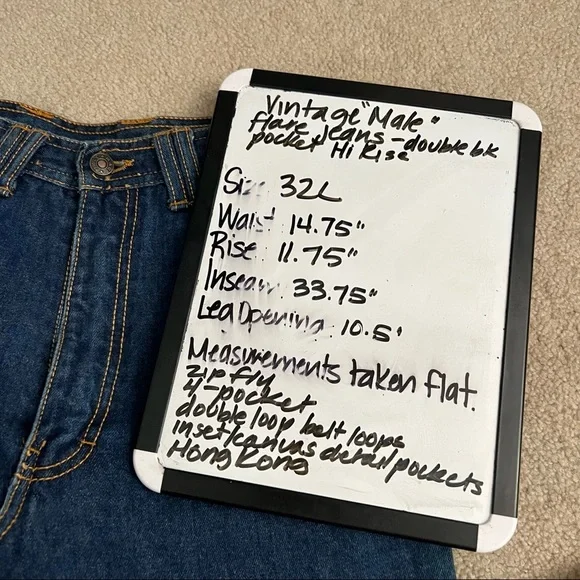 Vintage "Male"
flare jeans - double bk
pocket Hi Rise
Size 32L
Waist: 14.75"
Rise: 11.75"
Inseam: 33.75"
Leg Opening: 10.5'
Measurements taken flat.
zip fly
4-pocket
double loop belt loops
inset/canvas detail pockets
Hong Kong